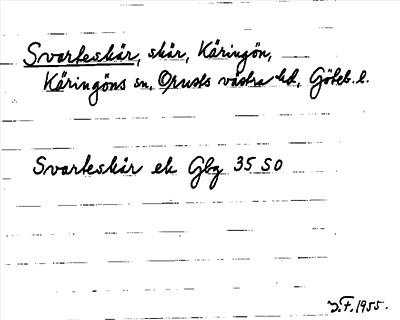 Svarteskär, skär, Käringön,
Käringöns sn, Orusts västra hd, Göteb. l.
Svarteskär ek Gbg 35 SO
J.F. 1955.